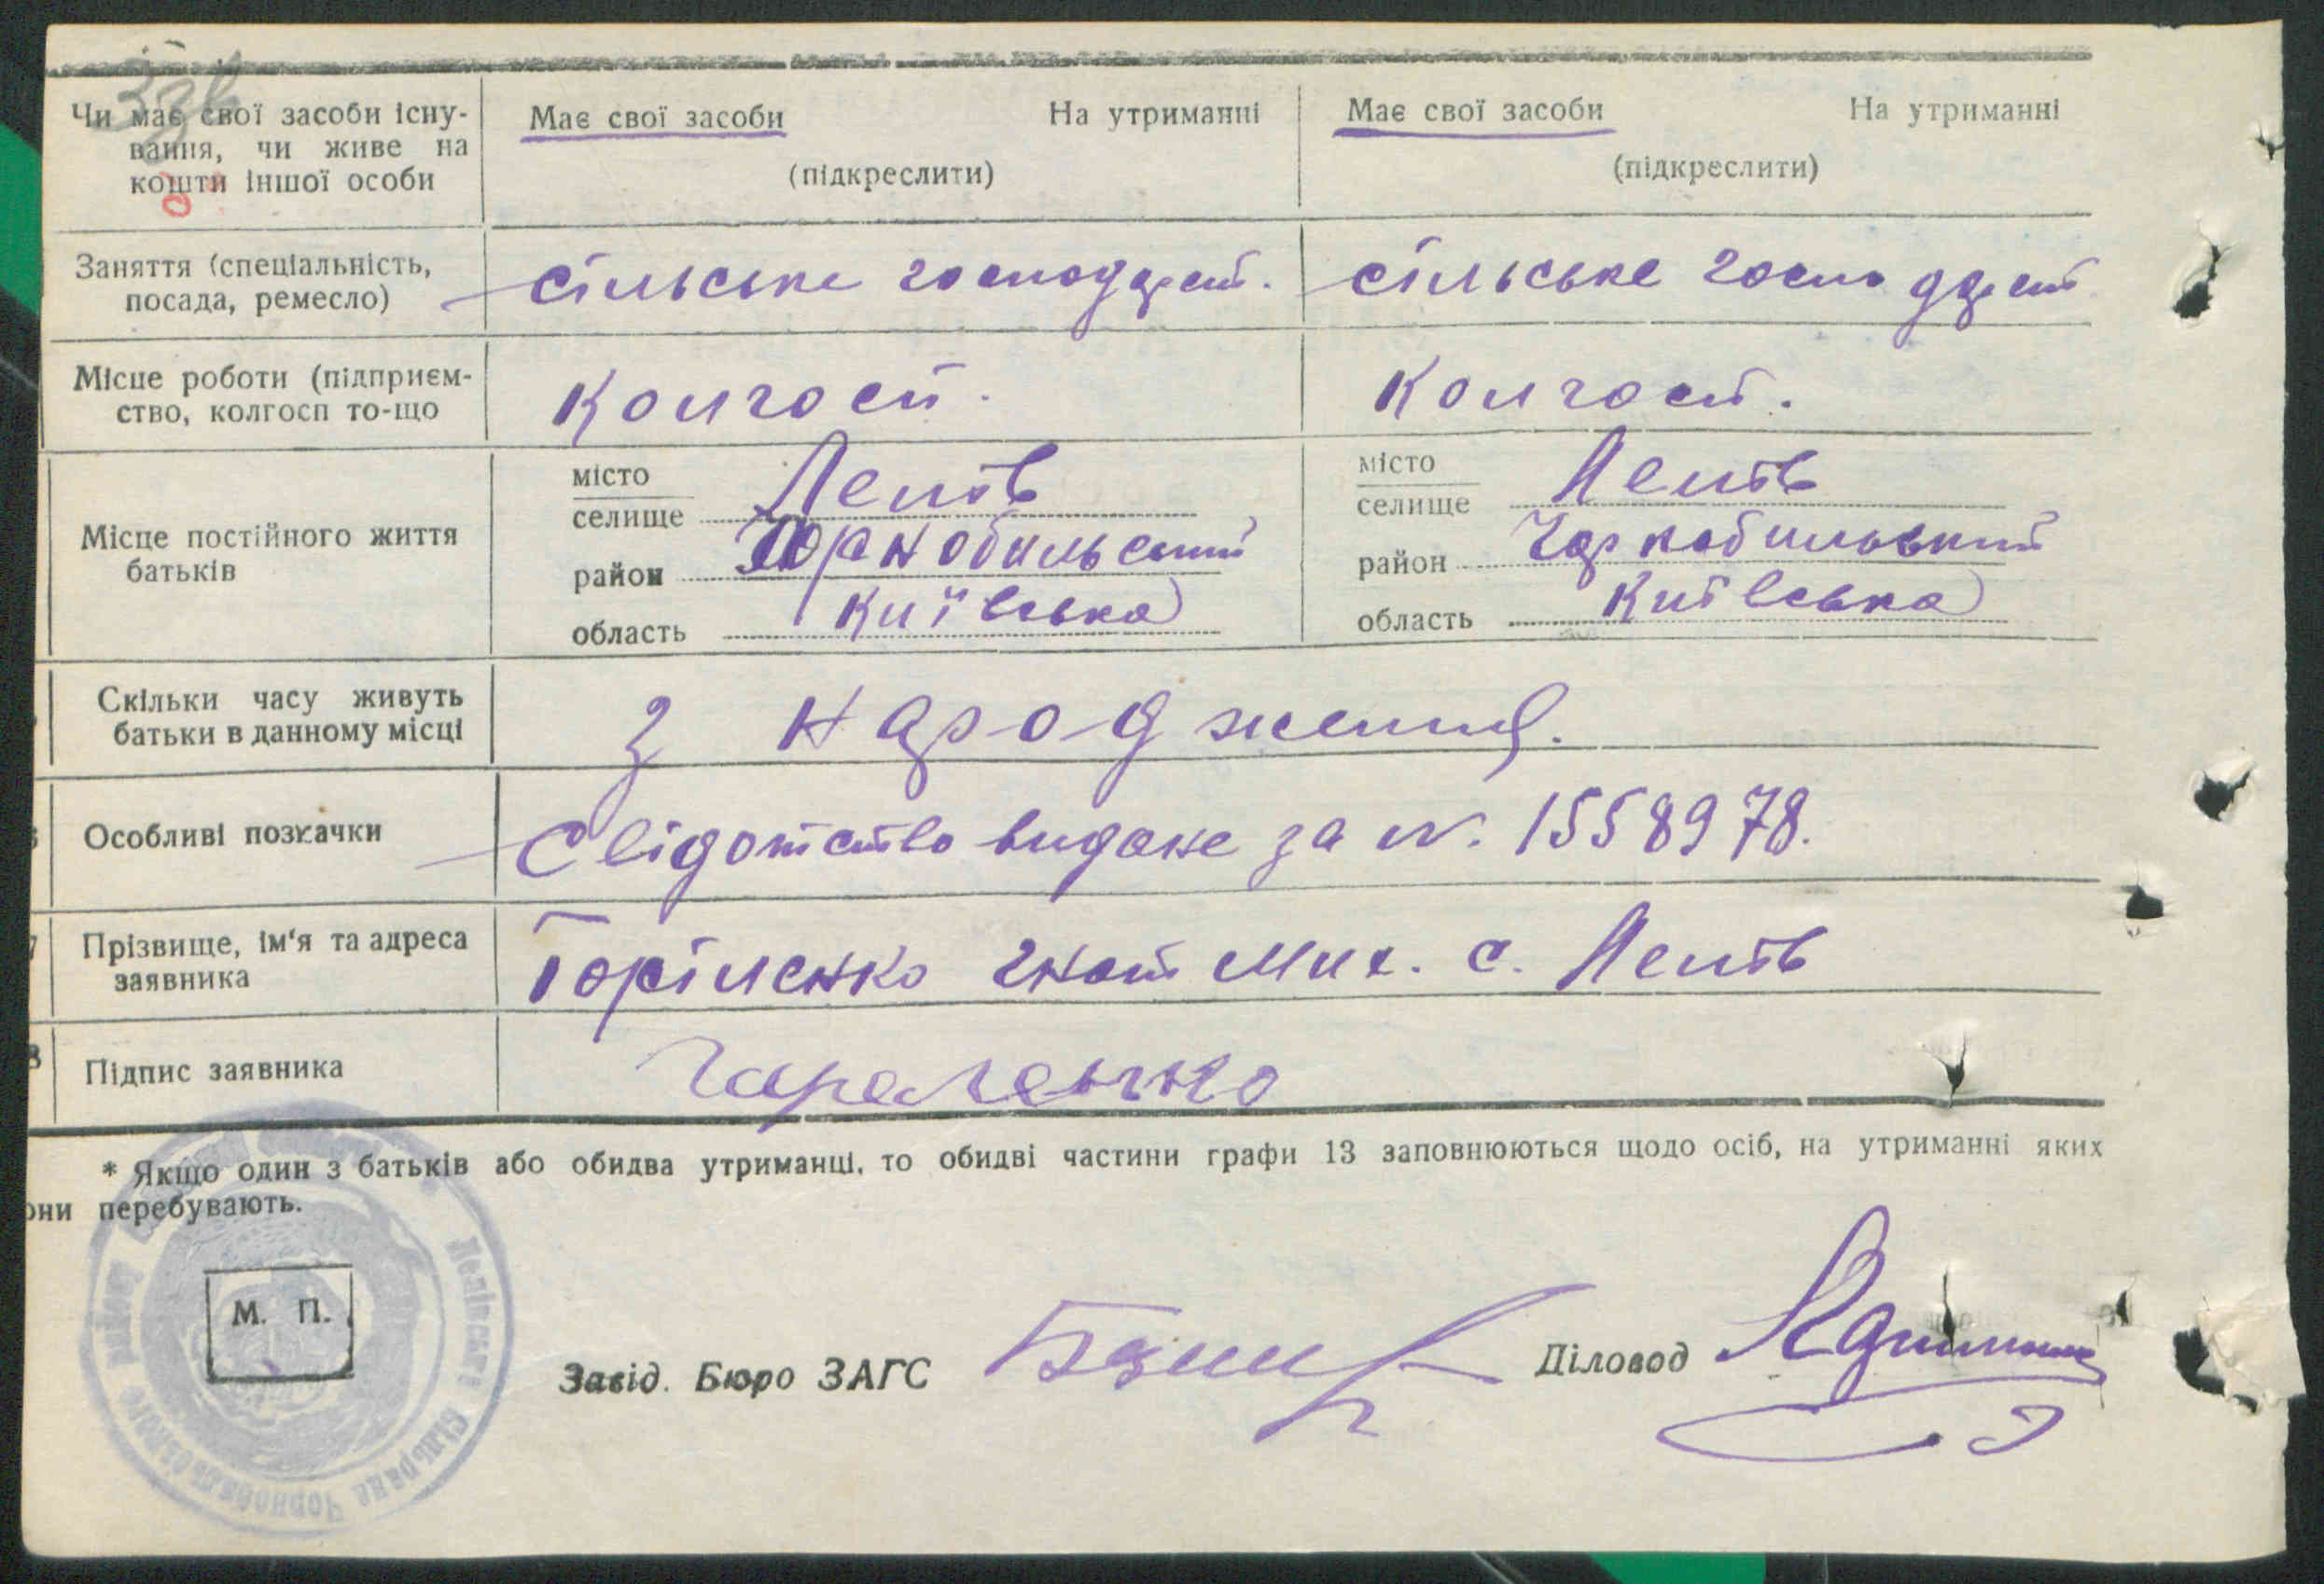 Чи має свої засоби існу-
вання, чи живе на
кошти іншої особи
Має свої засоби На утриманні
(підкреслити)
Має свої засоби На утриманні
(підкреслити)
Заняття (спеціальність,
посада, ремесло)
сільське господарст.
сільське господарст
Місце роботи (підприєм-
ство, колгосп то-що
Колгосп.
Колгосп.
Місце постійного життя
батьків
місто
селище Лелів
район Чорнобильський
область Київська
місто
селище Лелів
район Чорнобильський
область Київська
Скільки часу живуть
батьки в данному місці
З народження.
Особливі позначки
Свідотство видане за N. 1558978.
7
Прізвище, ім'я та адреса
заявника
Горіленко Гнат Мих. с. Лелів
8
Підпис заявника
* Якщо один з батьків або обидва утриманці, то обидві частини графи 13 заповнюються щодо осіб, на утриманні яких
они перебувають.
М. П.
Лелівська Сільрада Чорнобильського
Завід. Бюро ЗАГС
Діловод